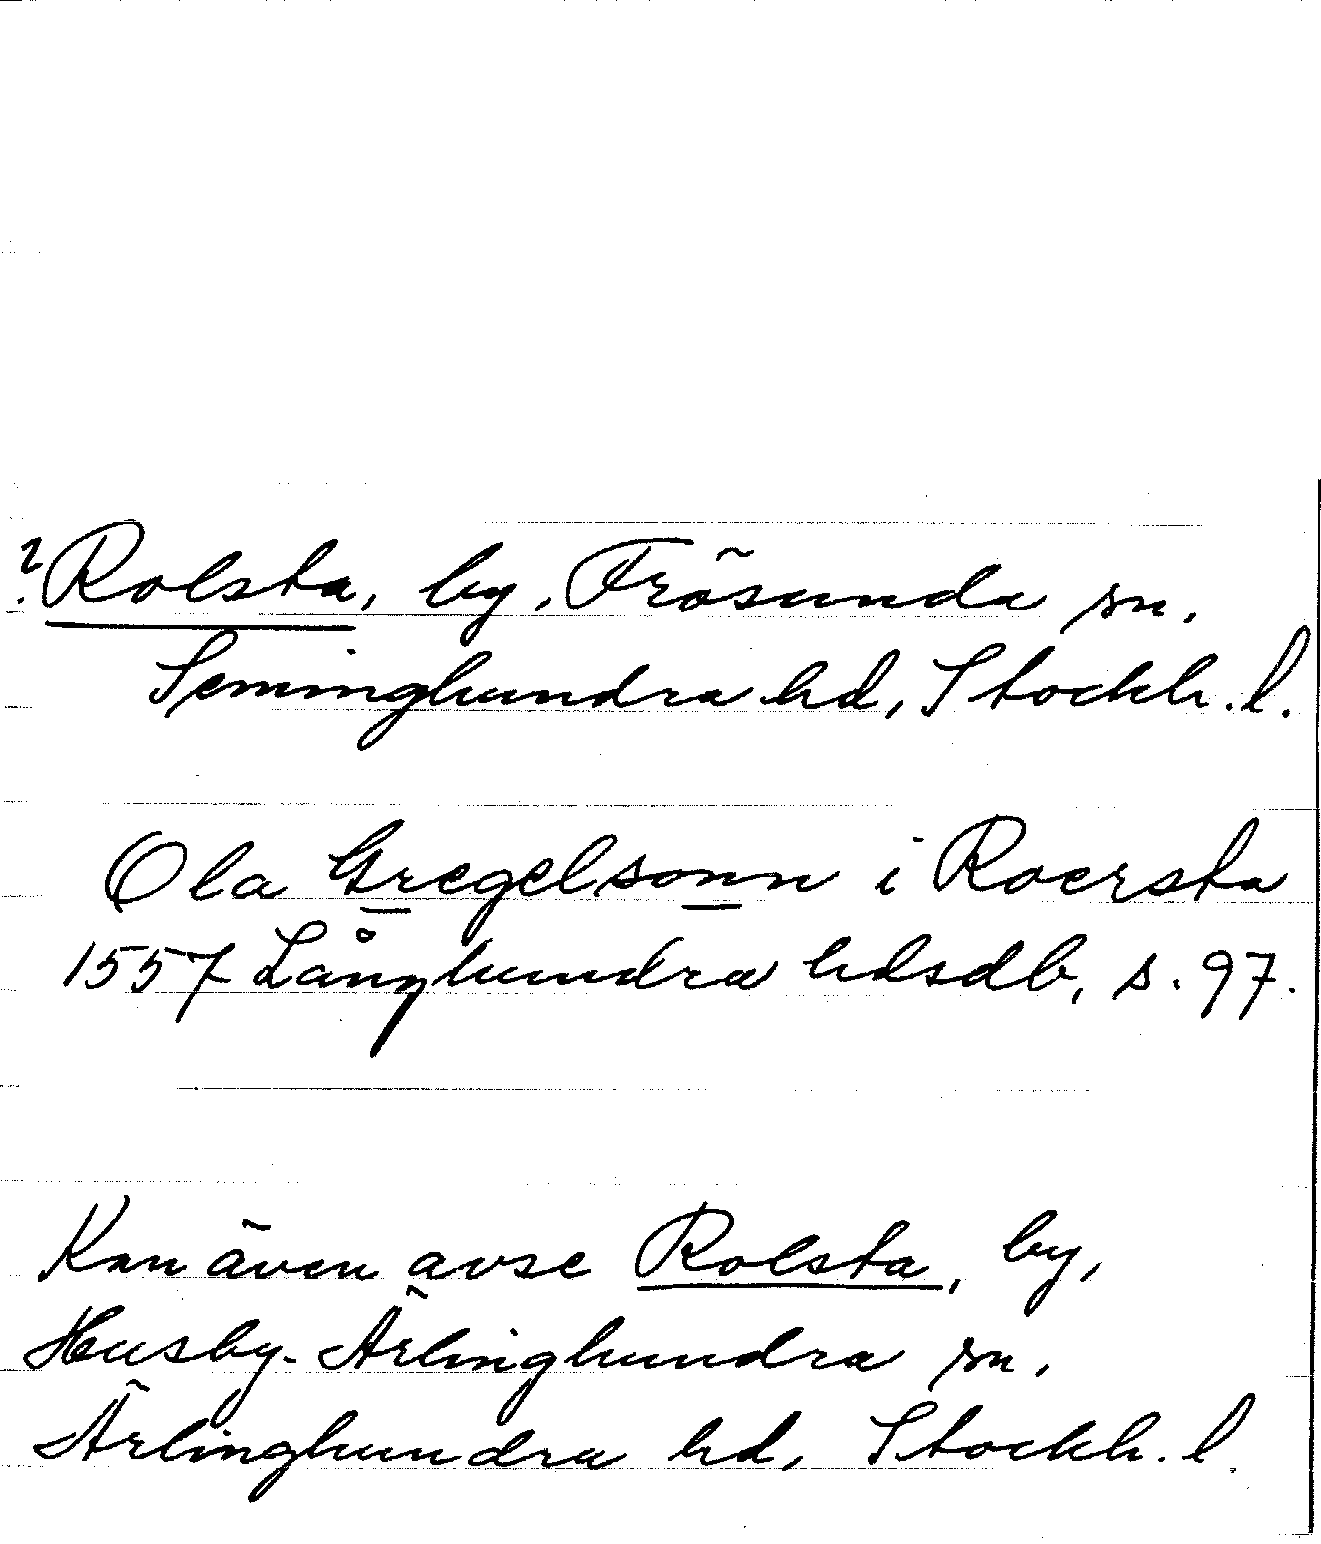 ? Rolsta, by, Frösunda sn.
Seminghundra hd, Stockh. l.
Ola Gregelsonn i Roersta
1557 Långhundra hdsdb, s. 97.
Kan även avse Rolsta, by,
Husby-Ärlinghundra sn.
Ärlinghundra hd, Stockh. l.